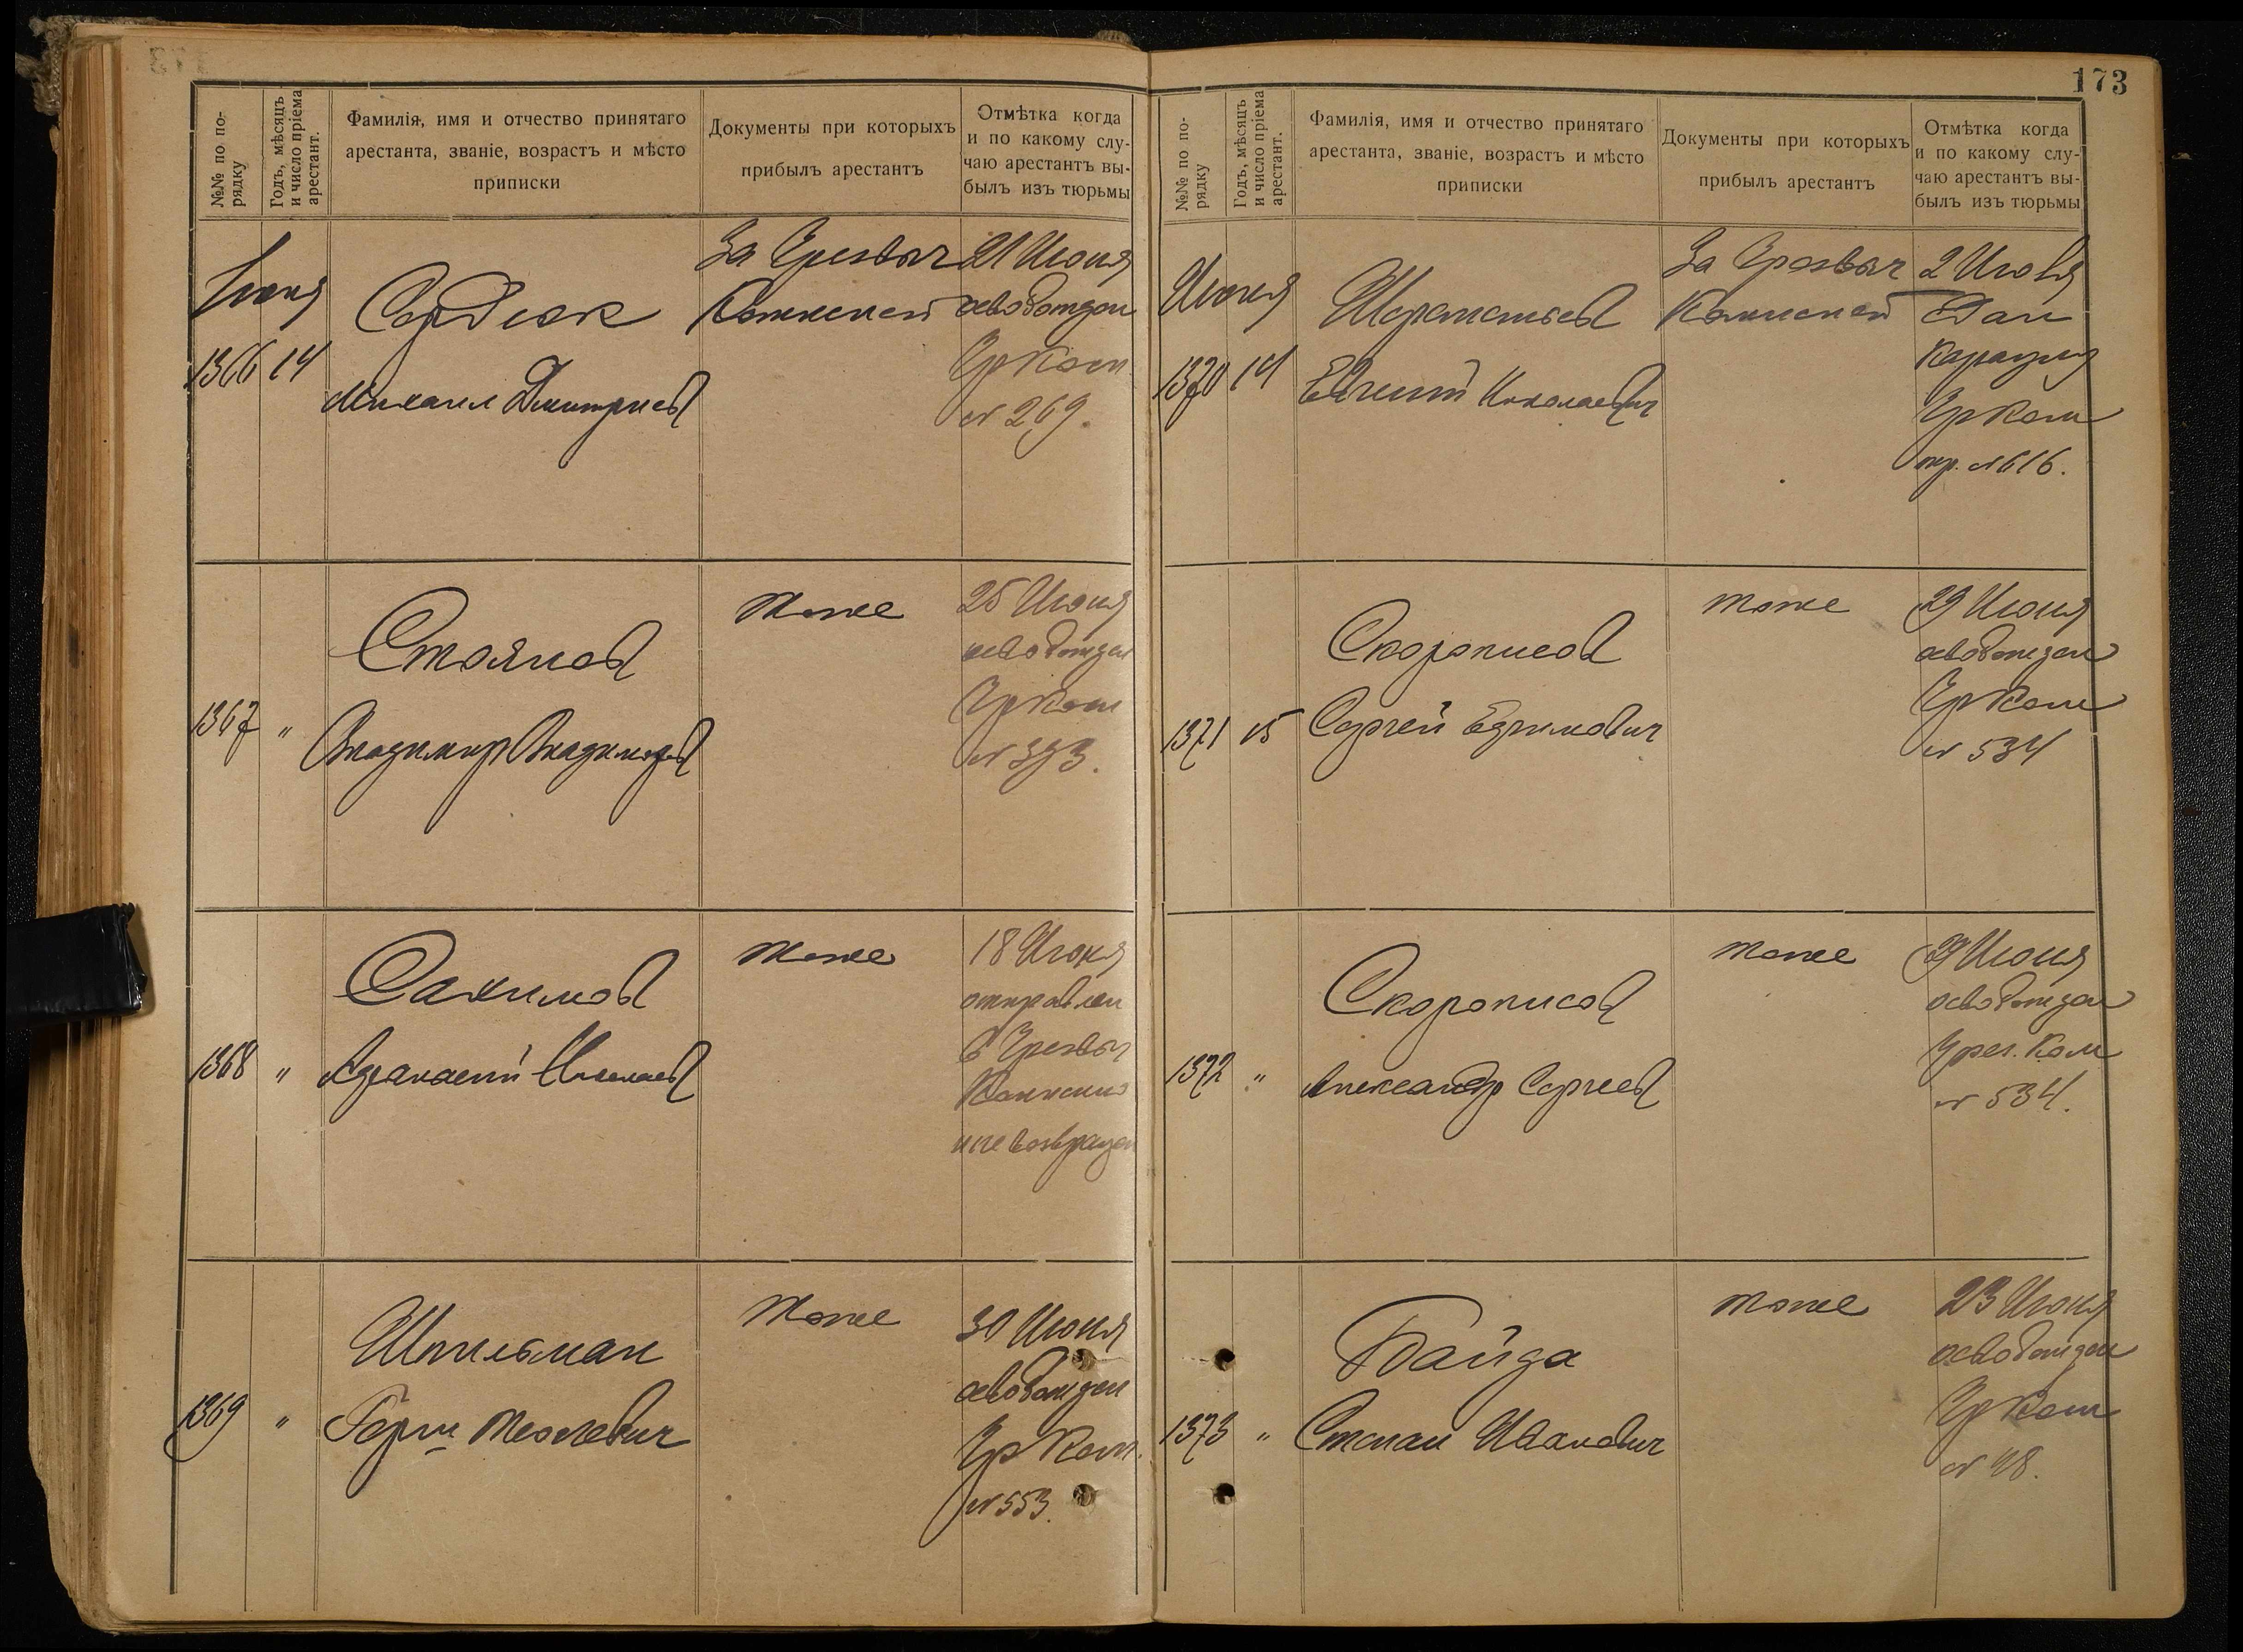 173
№№ по по-
рядку
Годъ, мѣсяцъ
и число пріема
арестант.
Фамилія, имя и отчество принятаго
арестанта, званіе, возрастъ и мѣсто
приписки
Документы при которыхъ
прибылъ арестантъ
Отмѣтка когда
и по какому слу-
чаю арестантъ вы-
былъ изъ тюрьмы
Июня
1366 14
Сердюк
Михаил Дмитриев
За Чрезвыч
Комиссией
21 Июня
освобожден
Чр Ком
№ 269.
1367 "
Стоянов
Владимир Владимиров
тоже
25 Июня
освобожден
Чр Ком
№ 393.
1368 "
Сахимов
Афанасий Николаев
тоже
18 Июня
отправлен
в Чрезвыч
Комиссию
и не возвращен
1369 "
Шпильман
тоже
30 Июня
освобожден
Чр Ком.
№ 553.
№№ по по-
рядку
Годъ, мѣсяцъ
и число пріема
арестант.
Фамилія, имя и отчество принятаго
арестанта, званіе, возрастъ и мѣсто
приписки
Документы при которыхъ
прибылъ арестантъ
Отмѣтка когда
и по какому слу-
чаю арестантъ вы-
былъ изъ тюрьмы
Июня
1370 14
Шереметьев
Евгений Николаевич
За Чрезвыч
Комиссией
2 Июля
Дан
караулу
Чр Ком
пр. № 616.
1371 15
Скорописов
Сергей Ефимович
тоже
29 Июня
освобожден
Чр Ком
№ 534
1372 "
Скорописов
Александр Сергеев
тоже
29 Июня
освобожден
Чрез. Ком
№ 534.
1373 "
Байда
Степан Иванович
тоже
23 Июня
освобожден
Чр Ком
№ 48.